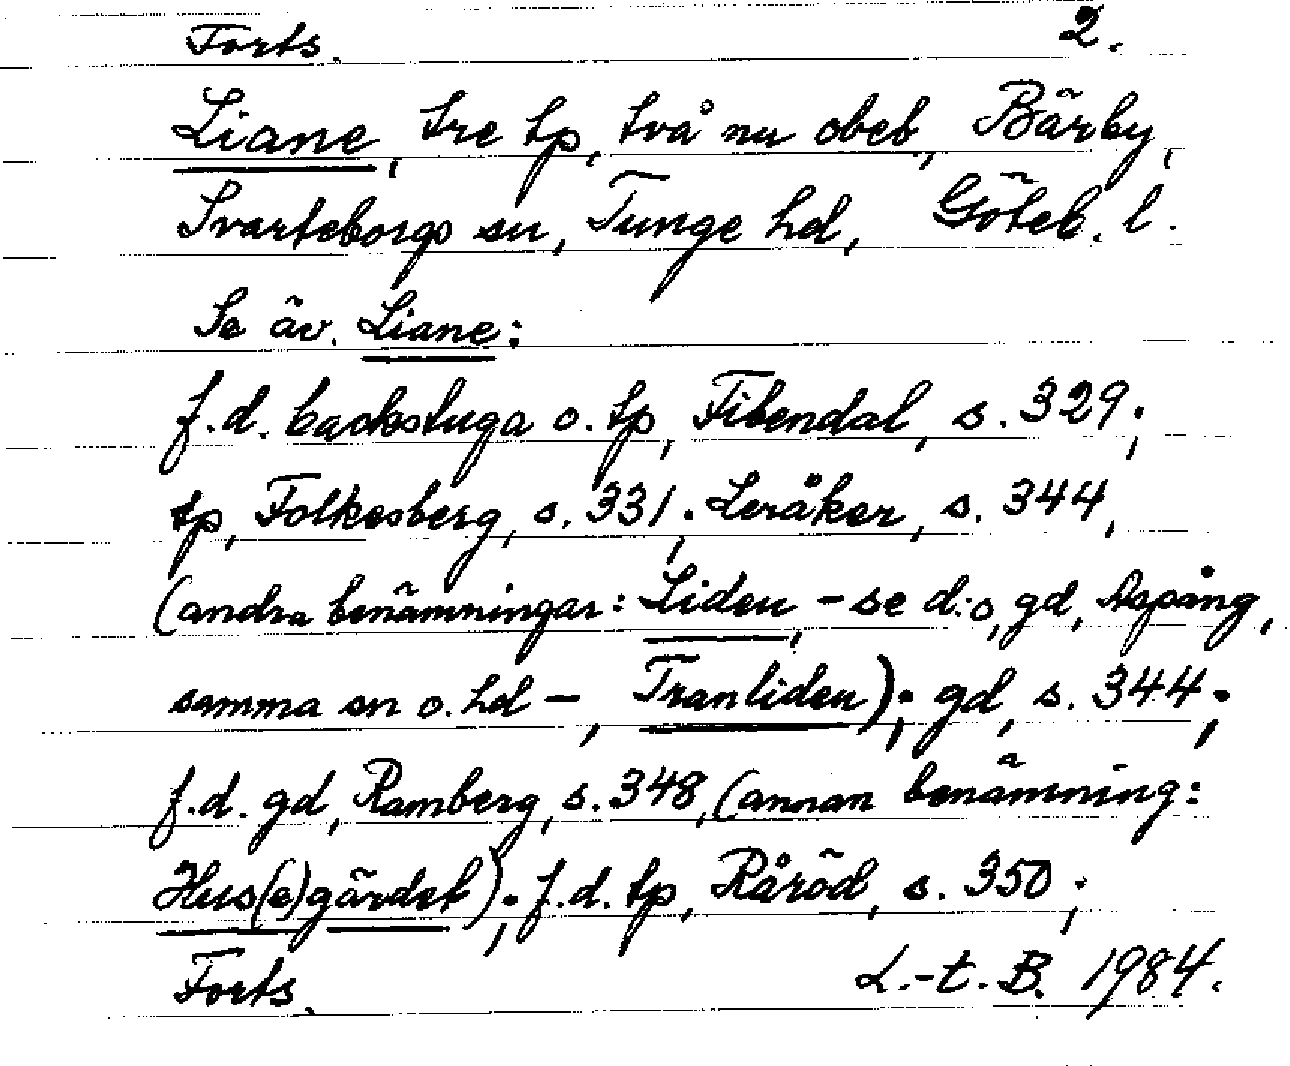 Forts. 2.
Liane, tre tp, två nu obeb, Bärby,
Svarteborgs sn, Tunge hd, Göteb. l.
Se äv. Liane:
f.d. backstuga o. tp, Fibendal, s. 329;
tp, Folkesberg, s. 331; Leråker, s. 344,
(andra benämningar: Liden, - se d:o, gd, Aspång,
samma sn o. hd -, Tranliden); gd, s. 344;
f.d. gd, Ramberg, s. 348, (annan benämning:
Hus(e)gärdet); f.d. tp, Råröd, s. 350;
Forts. L.-t. B. 1984.